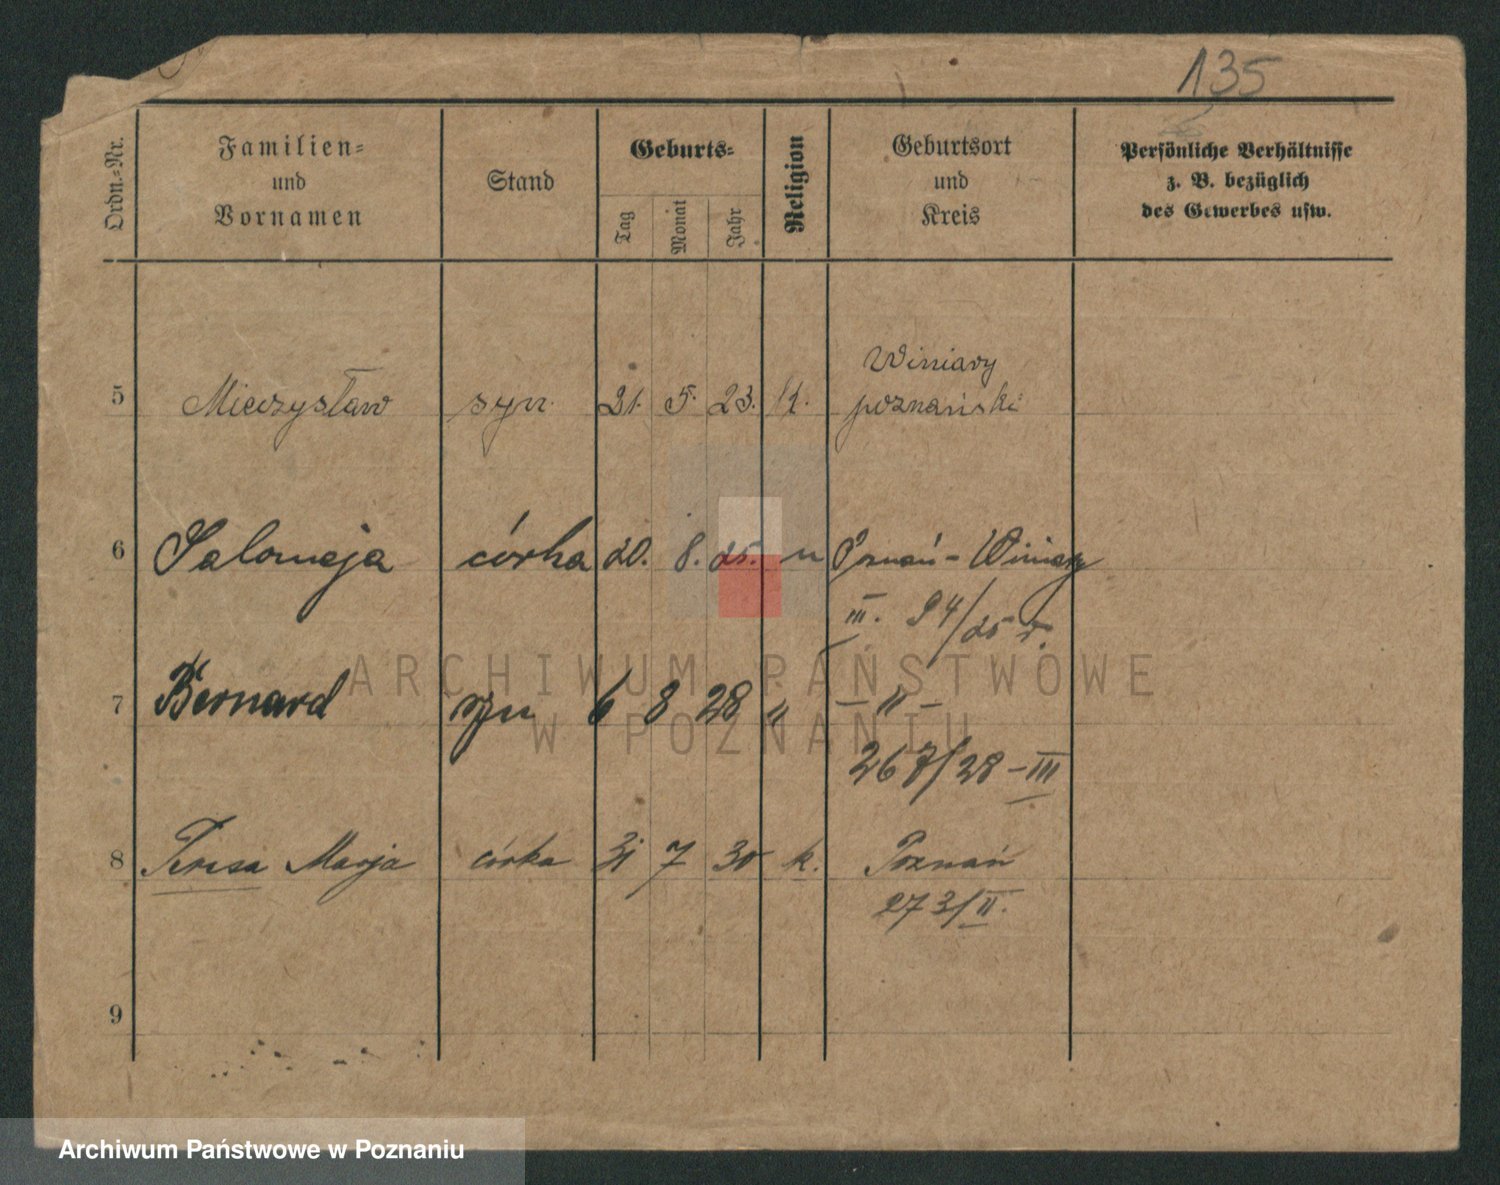 135
Ordn.-Nr.
Familien-
und
Vornamen
Stand
Geburts-
Tag
Monat
Jahr
Religion
Geburtsort
und
Kreis
Persönliche Verhältnisse
z. B. bezüglich
des Gewerbes usw.
Winiary
5 Mieczysław syn. 21. 5. 23. K. poznański
6 Salomeja córka 20. 8. 25. " Poznań - Winiary
III. 94/25 r.
7 Bernard syn 6 8 28 " - " -
267/28 - III
8 Teresa Marja córka 31 7 30 k. Poznań
273/II.
9
ARCHIWUM PAŃSTWOWE
W POZNANIU
Archiwum Państwowe w Poznaniu